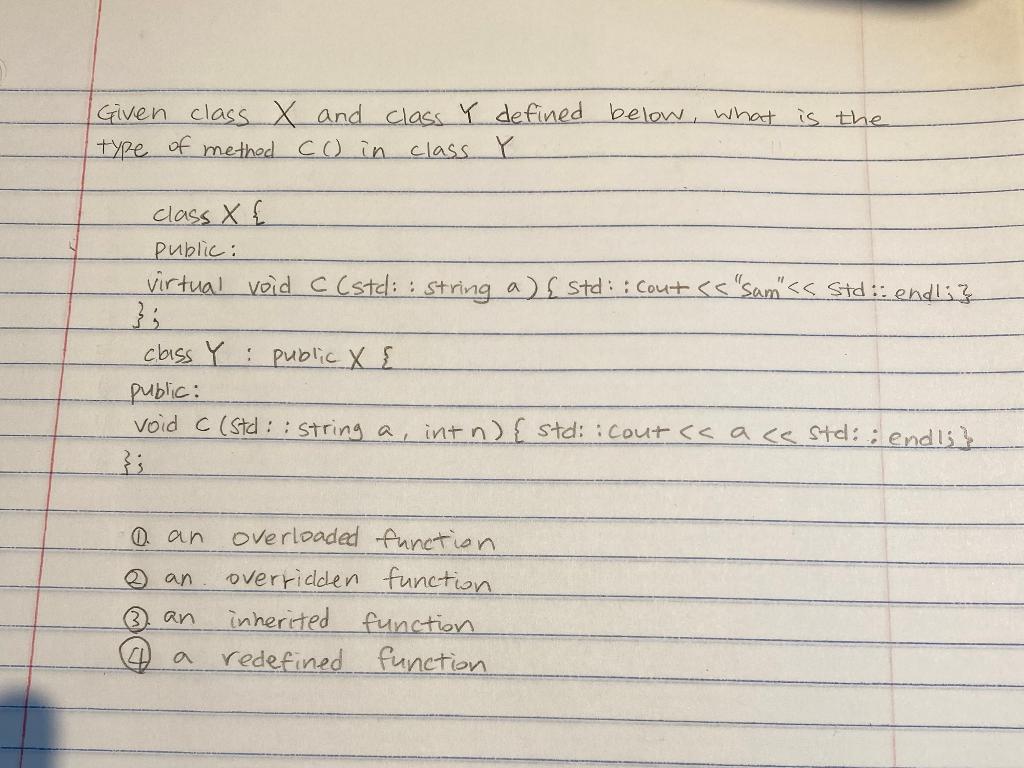 Given class X and class Y defined below, what is the
type of method C() in class Y
class X {
public:
virtual void C (std::string a) { std::cout << "Sam" << std::endl; }
};
class Y : public X {
public:
void C (std::string a, int n) { std::cout << a << std::endl; }
};
① an overloaded function
② an overridden function
③ an inherited function
④ a redefined function